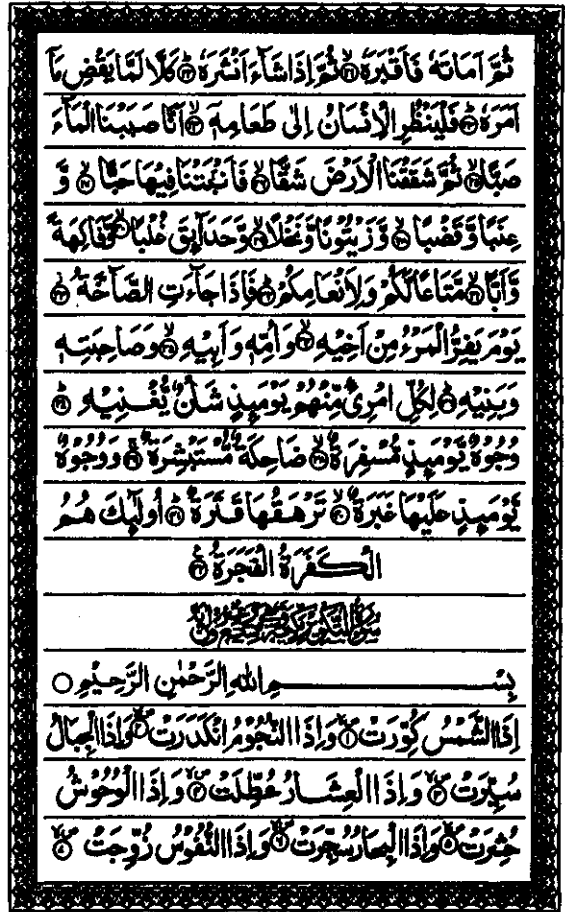 ثُمَّ اَمَاتَهٗ فَاَقْبَرَهٗ ۙ﴿۲۱﴾ ثُمَّ اِذَا شَآءَ اَنْشَرَهٗ ؕ﴿۲۲﴾ كَلَّا لَمَّا يَقْضِ مَاۤ
اَمَرَهٗ ؕ﴿۲۳﴾ فَلْيَنْظُرِ الْاِنْسَانُ اِلٰى طَعَامِهٖۤ ۙ﴿۲۴﴾ اَنَّا صَبَبْنَا الْمَآءَ
صَبًّا ۙ﴿۲۵﴾ ثُمَّ شَقَقْنَا الْاَرْضَ شَقًّا ۙ﴿۲۶﴾ فَاَنْۢبَتْنَا فِيْهَا حَبًّا ۙ﴿۲۷﴾ وَّ
عِنَبًا وَّقَضْبًا ۙ﴿۲۸﴾ وَّزَيْتُوْنًا وَّنَخْلًا ۙ﴿۲۹﴾ وَّحَدَآئِقَ غُلْبًا ۙ﴿۳۰﴾ وَّفَاكِهَةً
وَّاَبًّا ۙ﴿۳۱﴾ مَّتَاعًا لَّكُمْ وَلِاَنْعَامِكُمْ ؕ﴿۳۲﴾ فَاِذَا جَآءَتِ الصَّآخَّةُ ۫﴿۳۳﴾
يَوْمَ يَفِرُّ الْمَرْءُ مِنْ اَخِيْهِ ۙ﴿۳۴﴾ وَاُمِّهٖ وَاَبِيْهِ ۙ﴿۳۵﴾ وَصَاحِبَتِهٖ
وَبَنِيْهِ ؕ﴿۳۶﴾ لِكُلِّ امْرِئٍ مِّنْهُمْ يَوْمَئِذٍ شَاْنٌ يُّغْنِيْهِ ؕ﴿۳۷﴾
وُجُوْهٌ يَّوْمَئِذٍ مُّسْفِرَةٌ ۙ﴿۳۸﴾ ضَاحِكَةٌ مُّسْتَبْشِرَةٌ ۚ﴿۳۹﴾ وَوُجُوْهٌ
يَّوْمَئِذٍ عَلَيْهَا غَبَرَةٌ ۙ﴿۴۰﴾ تَرْهَقُهَا قَتَرَةٌ ؕ﴿۴۱﴾ اُولٰٓئِكَ هُمُ
الْكَفَرَةُ الْفَجَرَةُ ﴿۴۲﴾
بِسْمِ اللهِ الرَّحْمٰنِ الرَّحِيْمِ ○
اِذَا الشَّمْسُ كُوِّرَتْ ۪ۙ﴿۱﴾ وَاِذَا النُّجُوْمُ انْكَدَرَتْ ۪ۙ﴿۲﴾ وَاِذَا الْجِبَالُ
سُيِّرَتْ ۪ۙ﴿۳﴾ وَاِذَا الْعِشَارُ عُطِّلَتْ ۪ۙ﴿۴﴾ وَاِذَا الْوُحُوْشُ
حُشِرَتْ ۪ۙ﴿۵﴾ وَاِذَا الْبِحَارُ سُجِّرَتْ ۪ۙ﴿۶﴾ وَاِذَا النُّفُوْسُ زُوِّجَتْ ۪ۙ﴿۷﴾